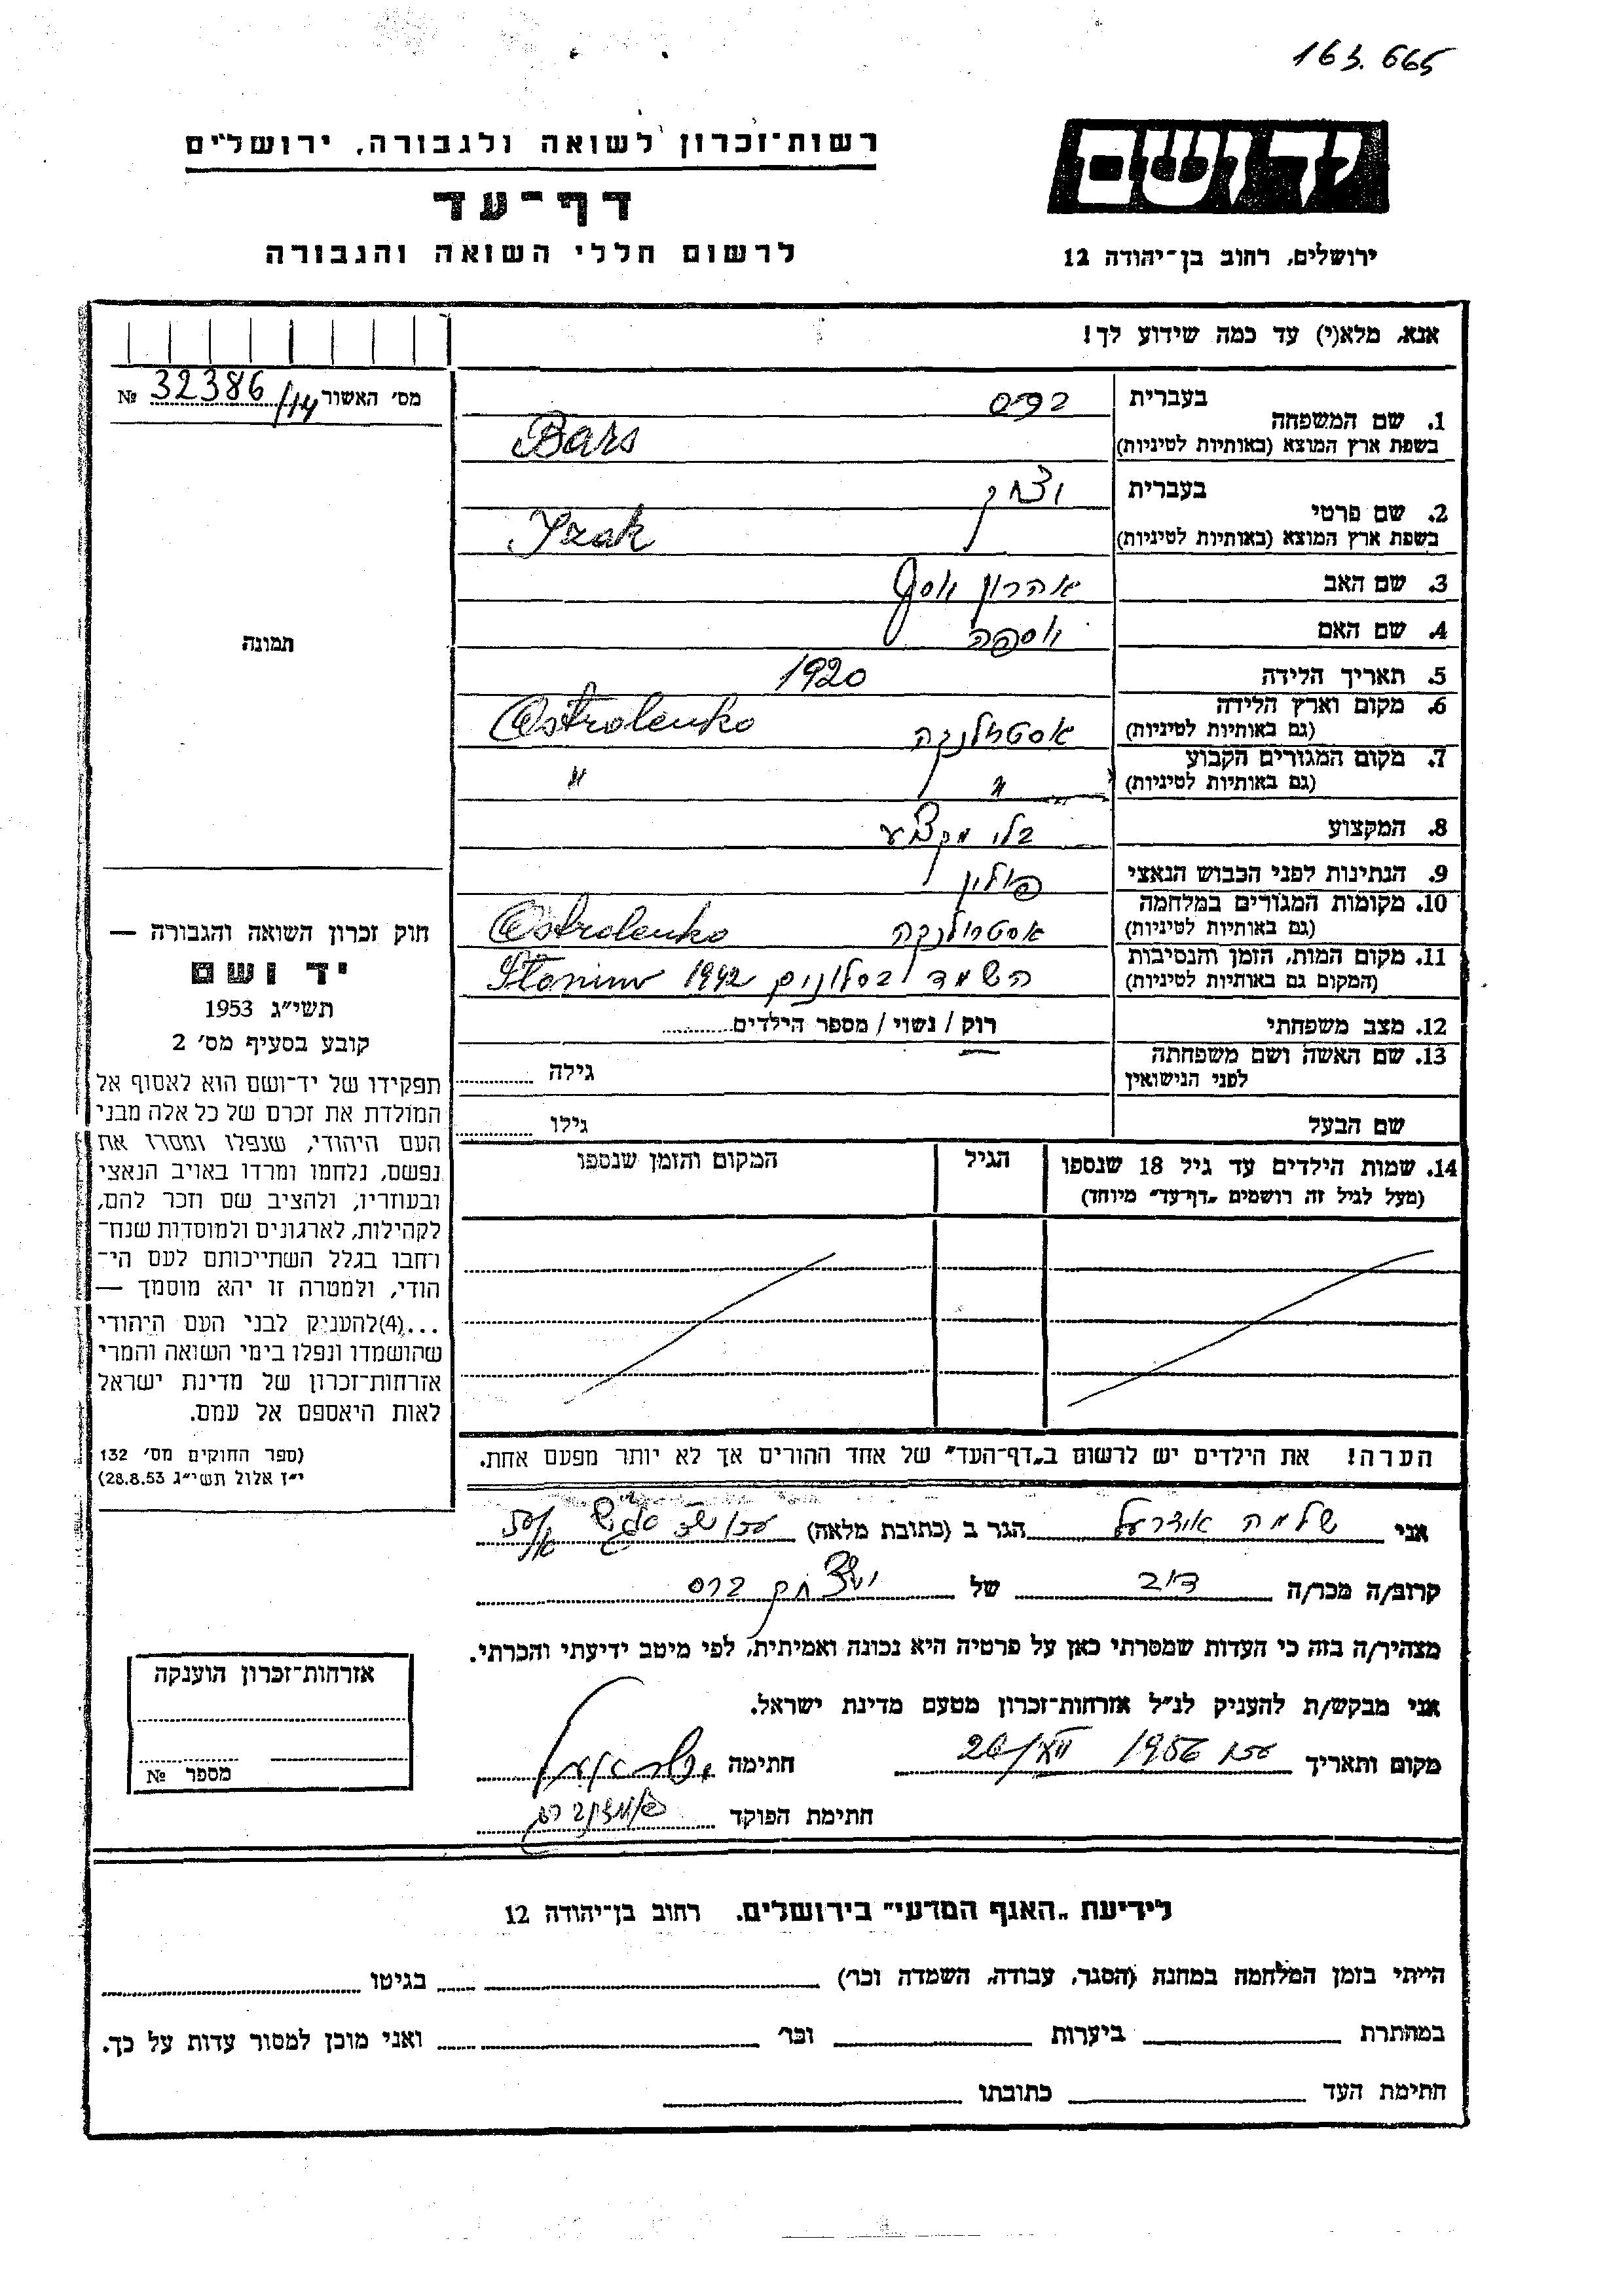 163.665
רשות־זכרון לשואה ולגבורה, ירושלים
דף־עד
לרשום חללי השואה והגבורה
ידושם
ירושלים, רחוב בן־יהודה 12
אנא, מלא(י) עד כמה שידוע לך!
מס' האשור 32386/14 №
1. שם המשפחה
בעברית ברס
בשפת ארץ המוצא (באותיות לטיניות) Bars
2. שם פרטי
בעברית יצחק
בשפת ארץ המוצא (באותיות לטיניות) Izak
3. שם האב אהרון יוסף
4. שם האם
5. תאריך הלידה 1920
6. מקום וארץ הלידה
(גם באותיות לטיניות) אסטרולנקה Ostrolenko
7. מקום המגורים הקבוע
(גם באותיות לטיניות) " "
8. המקצוע בלי מקצוע
9. הנתינות לפני הכבוש הנאצי פולין
10. מקומות המגורים במלחמה
(גם באותיות לטיניות) אסטרולנקה Ostrolenko
11. מקום המות, הזמן והנסיבות
(המקום גם באותיות לטיניות) השמד בסלונים 1942 Słonim
12. מצב משפחתי רוק / נשוי / מספר הילדים
13. שם האשה ושם משפחתה
לפני הנישואין גילה
שם הבעל גילו
14. שמות הילדים עד גיל 18 שנספו הגיל המקום והזמן שנספו
(מעל לגיל זה רושמים „דף־עד" מיוחד)
הערה! את הילדים יש לרשום ב„דף־העד" של אחד ההורים אך לא יותר מפעם אחת.
תמונה
חוק זכרון השואה והגבורה —
יד ושם
תשי״ג 1953
קובע בסעיף מס׳ 2
תפקידו של יד־ושם הוא לאסוף אל
המולדת את זכרם של כל אלה מבני
העם היהודי, שנפלו ומסרו את
נפשם, נלחמו ומרדו באויב הנאצי
ובעוזריו, ולהציב שם וזכר להם,
לקהילות, לארגונים ולמוסדות שנח־
רחבו בגלל השתייכותם לעם הי־
הודי, ולמטרה זו יהא מוסמך —
...(4)להעניק לבני העם היהודי
שהושמדו ונפלו בימי השואה והמרי
אזרחות־זכרון של מדינת ישראל
לאות היאספם אל עמם.
(ספר החוקים מס׳ 132
י״ז אלול תשי״ג 28.8.53)
אני שלמה הגר ב (כתובת מלאה)
קרוב/ה מכר/ה דוב של יצחק ברס
מצהיר/ה בזה כי העדות שמסרתי כאן על פרטיה היא נכונה ואמיתית, לפי מיטב ידיעתי והכרתי.
אני מבקש/ת להעניק לנ״ל אזרחות־זכרון מטעם מדינת ישראל.
מקום ותאריך 1956 חתימה
חתימת הפוקד
אזרחות־זכרון הוענקה
מספר №
לידיעת „האגף המדעי" בירושלים. רחוב בן־יהודה 12
הייתי בזמן המלחמה במחנת (הסגר, עבודה, השמדה וכו׳) בגיטו
במחתרת ביערות וכו׳ ואני מוכן למסור עדות על כך.
חתימת העד כתובתו